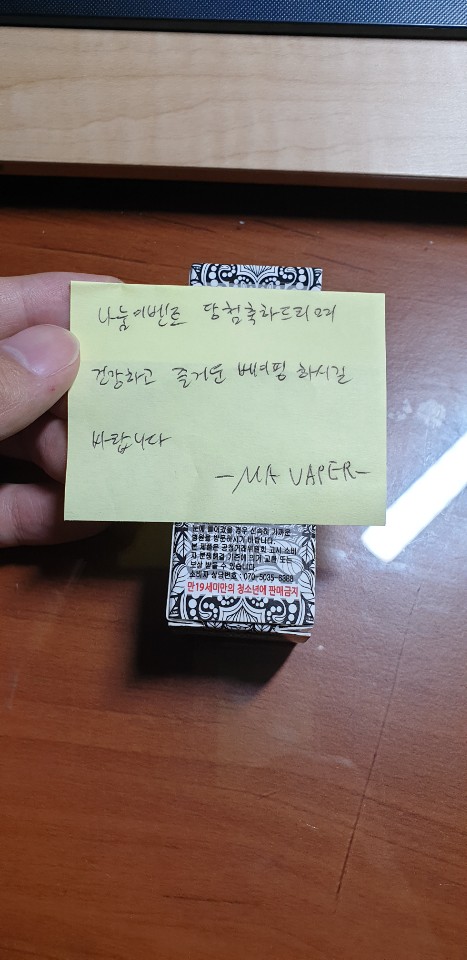 나눔이벤트 당첨축하드리며
건강하고 즐거운 베이핑 하시길
바랍니다
-MA VAPER-
눈에 들어갔을 경우 신속히 가까운
병원을 방문하시기 바랍니다.
본 제품은 공정거래위원회 고시 소비
자 분쟁해결 기준에 의거 교환 또는
보상 받을 수 있습니다.
소비자 상담번호 : 070-5035-8388
만19세미만의 청소년에 판매금지